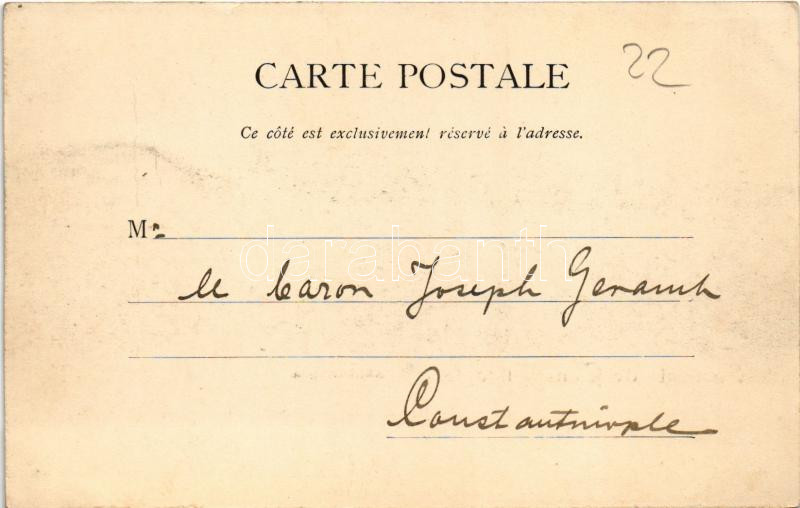 22
CARTE POSTALE
Ce côté est exclusivement réservé à l'adresse.
Mr
darabanth
le baron Joseph Geramb
Constantinople